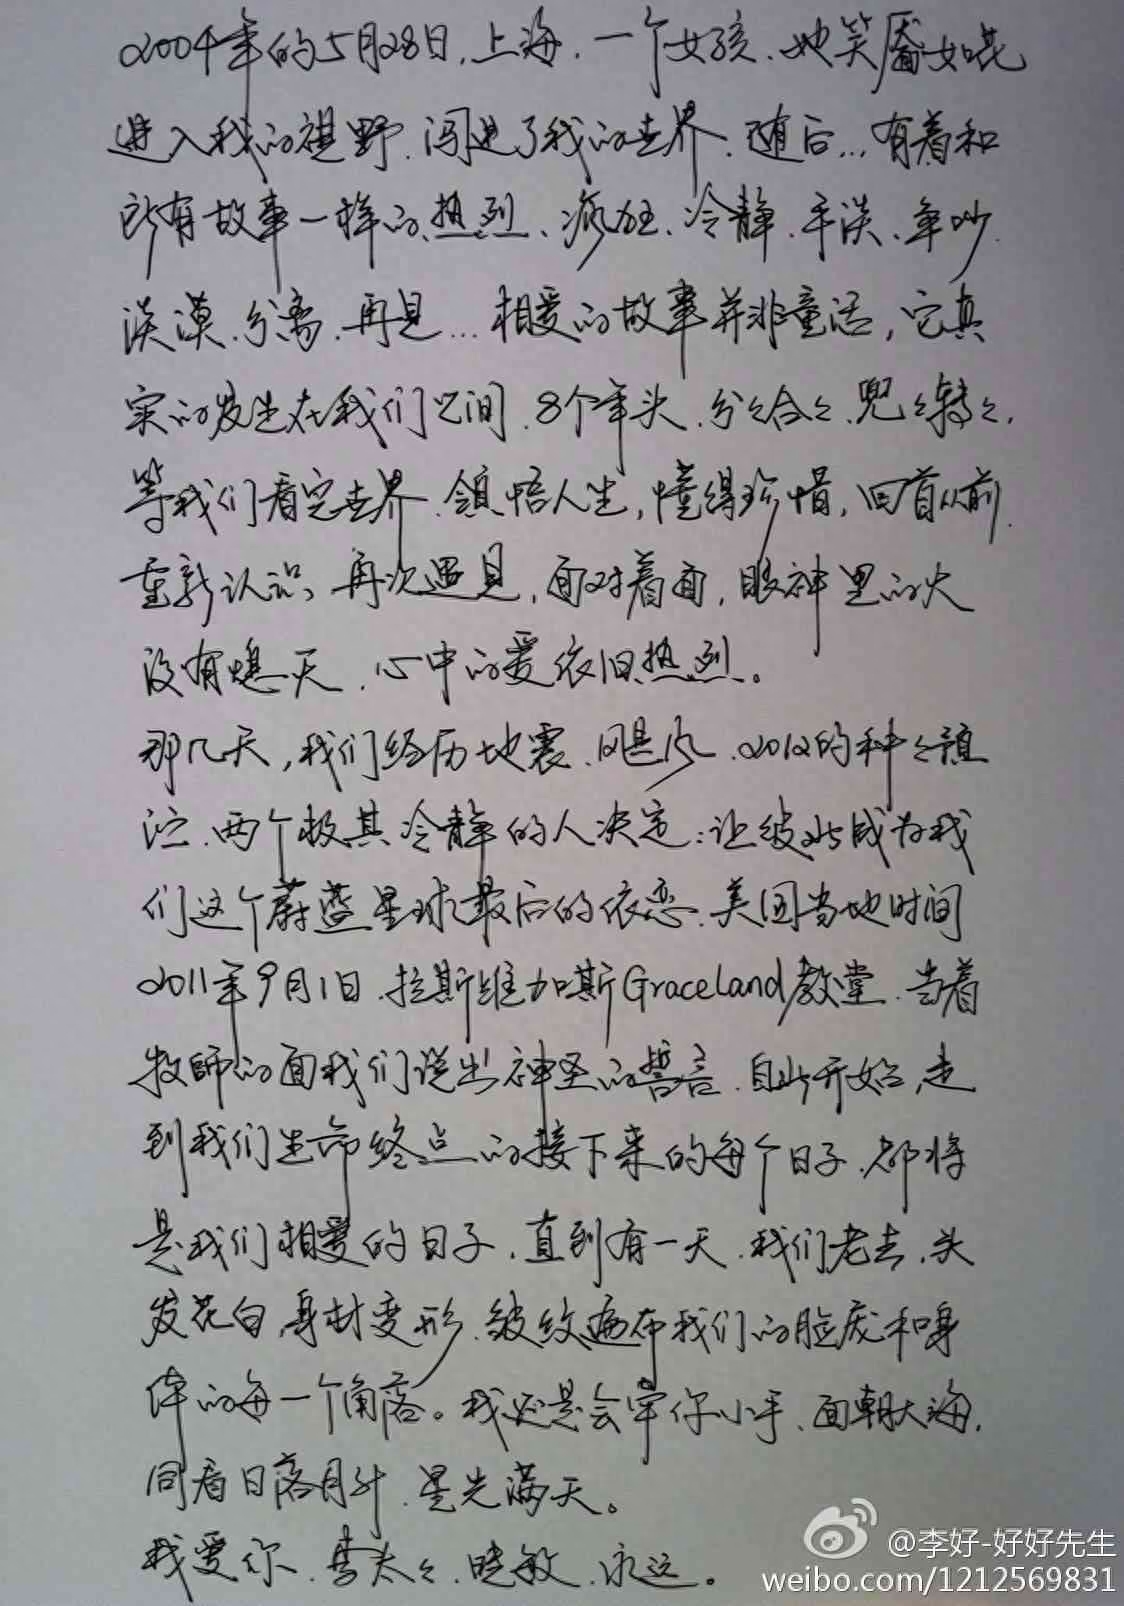 2004年的5月28日,上海,一个女孩、她笑靥如花
进入我的视野、闯进了我的世界、随后...有着和
所有故事一样的热烈、疯狂、冷静、平淡、争吵、
淡漠、分离、再见...相爱的故事并非童话,它真
实的发生在我们之间、8个年头、分々合々、兜々转々、
等我们看完世界、领悟人生,懂得珍惜,回首从前、
重新认识、再次遇见,面对着面,眼神里的火
没有熄灭、心中的爱依旧热烈。
那几天,我们经历地震、飓风、2012的种々
、两个极其冷静的人决定:让彼此成为我
们这个蔚蓝星球最后的依恋、美国当地时间
2011年9月1日、拉斯维加斯Graceland教堂、当着
牧師的面我们说出神圣的誓言、自此开始,走
到我们生命终点的接下来的每个日子、都将
是我们相爱的日子,直到有一天、我们老去,头
发花白,身材变形、皱纹遍布我们的脸庞和身
体的每一个角落。我还是会牵你小手、面朝大海,
同看日落月升、星光满天。
我爱你、李太々、晓敏、永远。
@李好-好好先生
weibo.com/1212569831